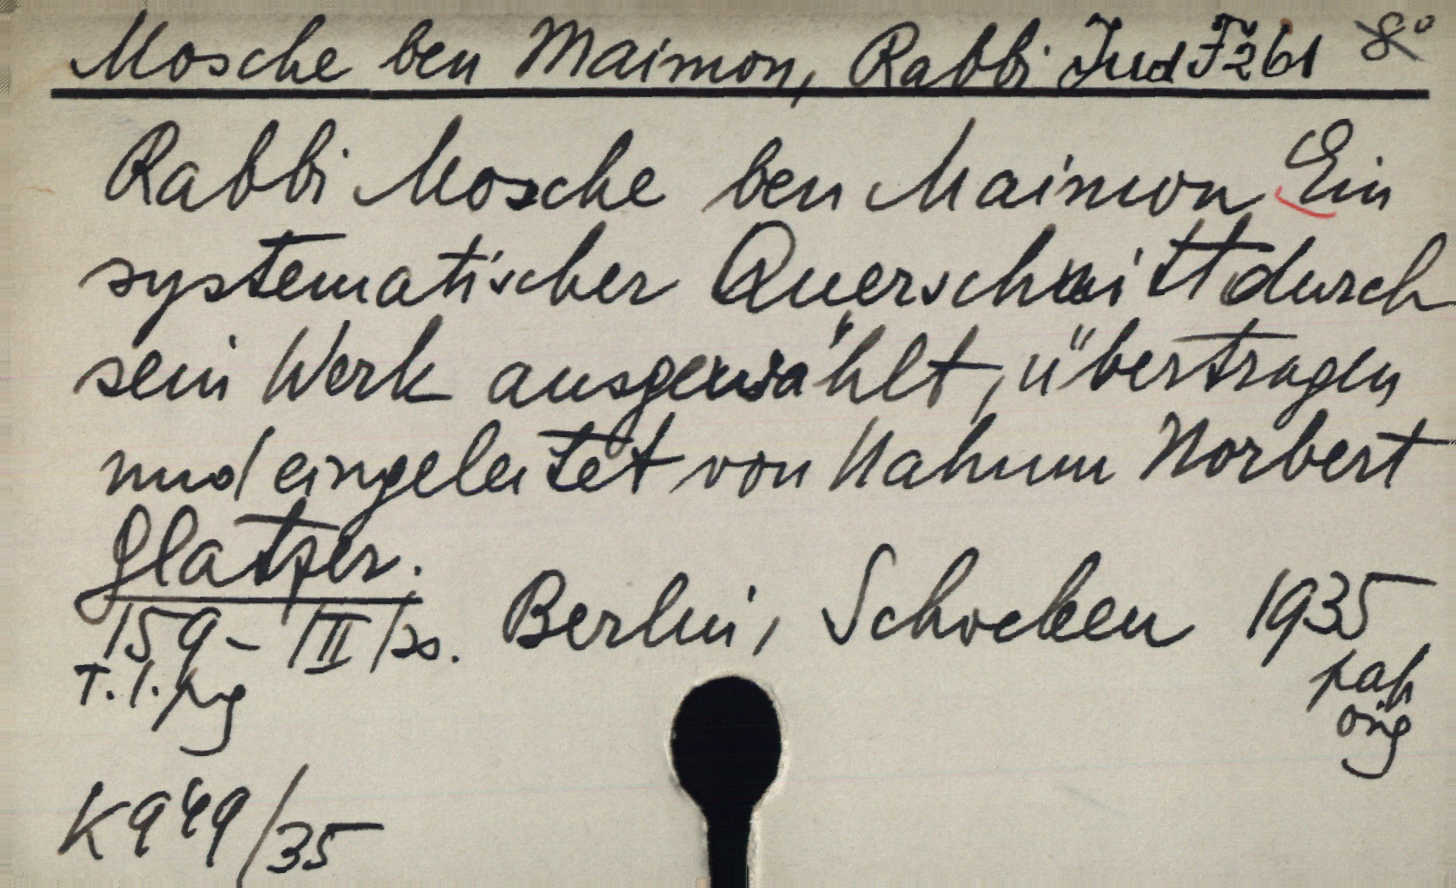 Mosche ben Maimon, Rabbi Jud F 261 8°
Rabbi Mosche ben Maimon Ein
systematischer Querschnitt durch
sein Werk ausgewählt, übertragen
und eingeleitet von Nahum Norbert
Glatzer.
159 - III S. Berlin, Schocken 1935
T. 1. pag
orig
K 949/35